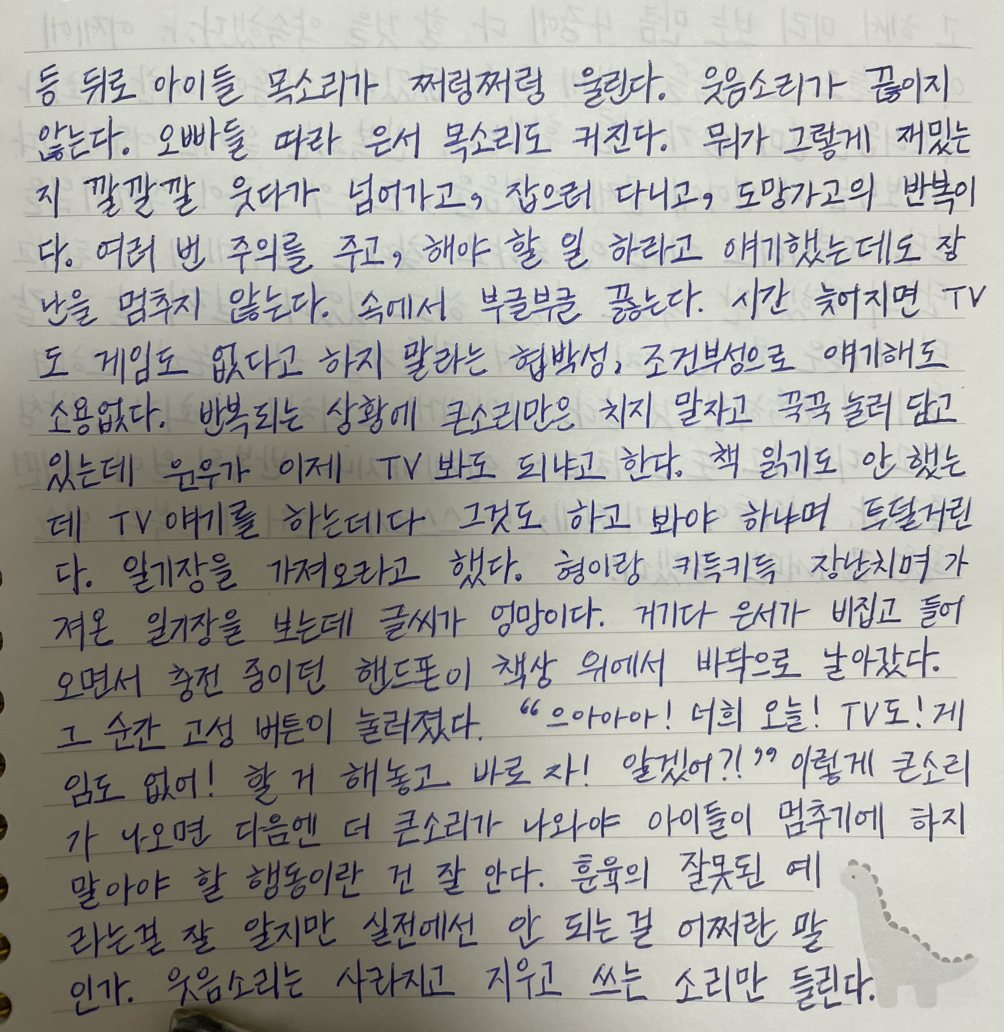 등 뒤로 아이들 목소리가 쩌렁쩌렁 울린다. 웃음소리가 끊이지
않는다. 오빠들 따라 은서 목소리도 커진다. 뭐가 그렇게 재밌는
지 깔깔깔 웃다가 넘어가고, 잡으러 다니고, 도망가고의 반복이
다. 여러 번 주의를 주고, 해야 할 일 하라고 얘기했는데도 장
난을 멈추지 않는다. 속에서 부글부글 끓는다. 시간 늦어지면 TV
도 게임도 없다고 하지 말라는 협박성, 조건부성으로 얘기해도
소용없다. 반복되는 상황에 큰소리만은 치지 말자고 꾹꾹 눌러 담고
있는데 윤우가 이제 TV 봐도 되냐고 한다. 책 읽기도 안 했는
데 TV 얘기를 하는데다 그것도 하고 봐야 하냐며 투덜거린
다. 일기장을 가져오라고 했다. 형이랑 키득키득 장난치며 가
져온 일기장을 보는데 글씨가 엉망이다. 거기다 은서가 비집고 들어
오면서 충전 중이던 핸드폰이 책상 위에서 바닥으로 날아갔다.
그 순간 고성 버튼이 눌러졌다. “으아아아! 너희 오늘! TV도! 게
임도 없어! 할 거 해놓고 바로 자! 알겠어?!” 이렇게 큰소리
가 나오면 다음엔 더 큰소리가 나와야 아이들이 멈추기에 하지
말아야 할 행동이란 건 잘 안다. 훈육의 잘못된 예
라는걸 잘 알지만 실전에선 안 되는걸 어쩌란 말
인가. 웃음소리는 사라지고 지우고 쓰는 소리만 들린다.